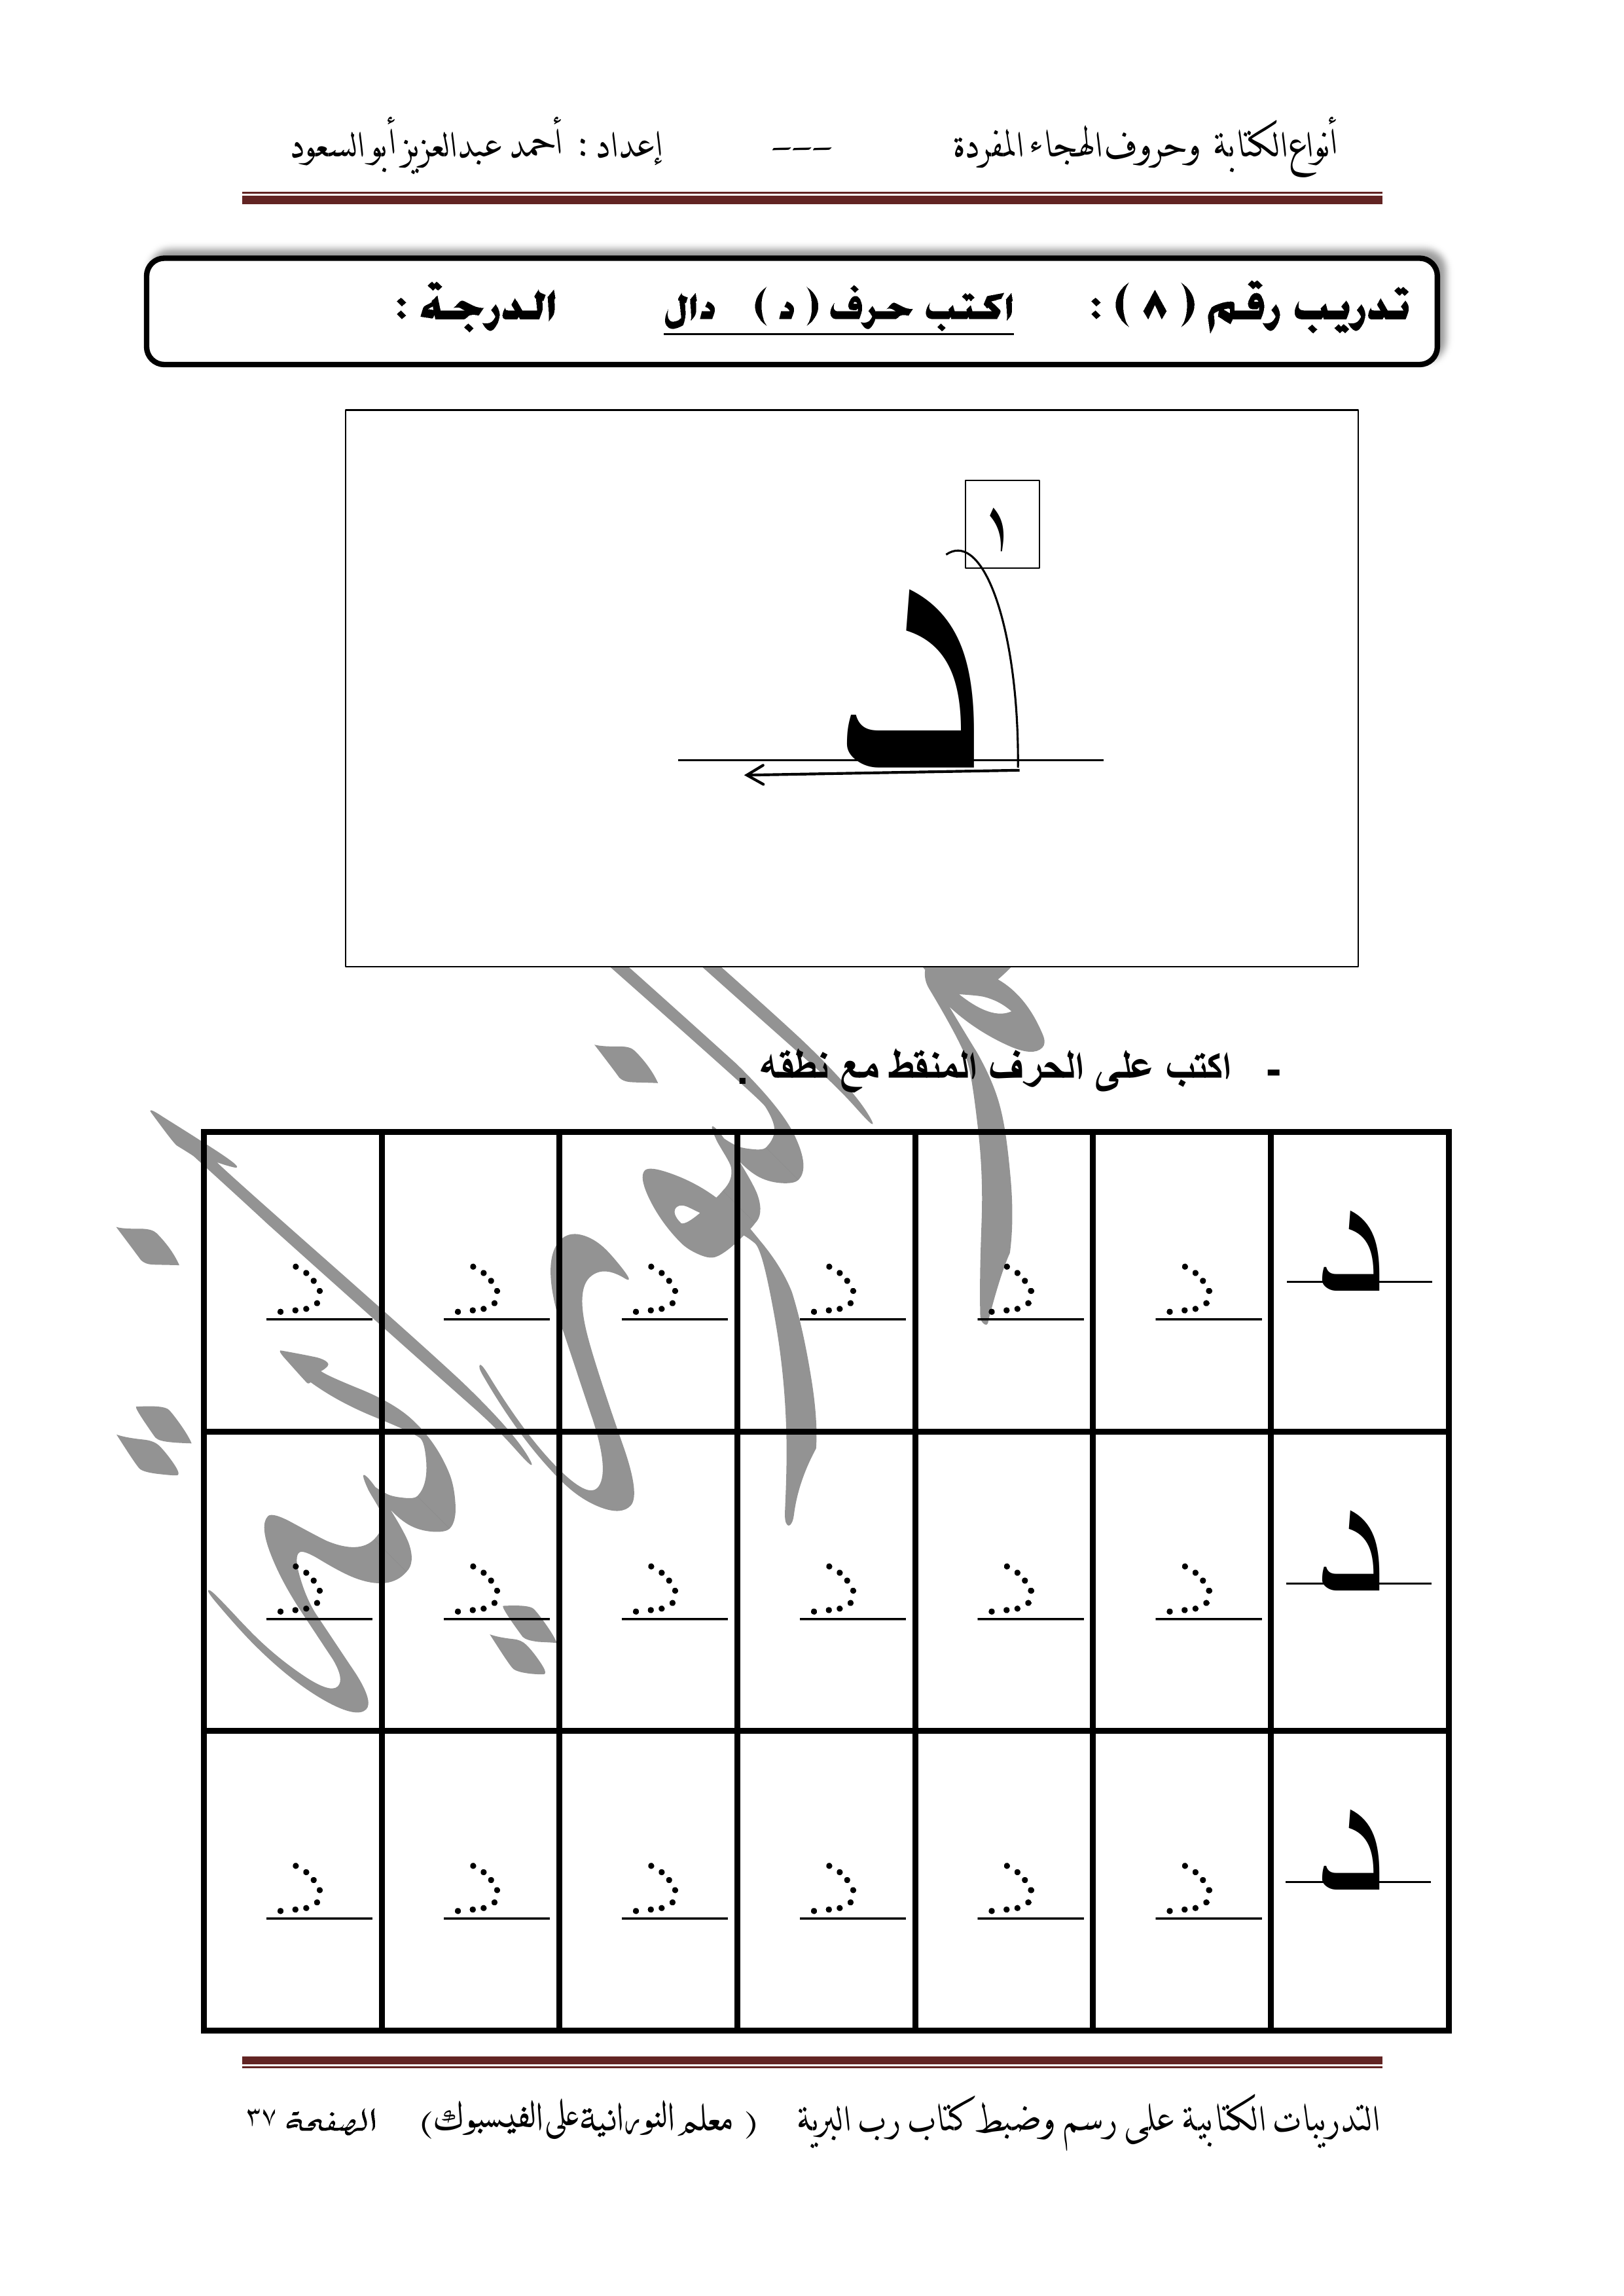 أنواع الكتابة وحروف الهجاء المفردة --- إعداد : أحمد عبدالعزيز أبو السعود
تدريب رقم ( ٨ ) : اكتب حرف ( د ) دال الدرجة :
١
د
- اكتب على الحرف المنقط مع نطقه .
د د د د د د د
د د د د د د د
د د د د د د د
التدريبات الكتابية على رسم وضبط كتاب رب البرية ( معلم النورانية على الفيسبوك) الصفحة ٣٧